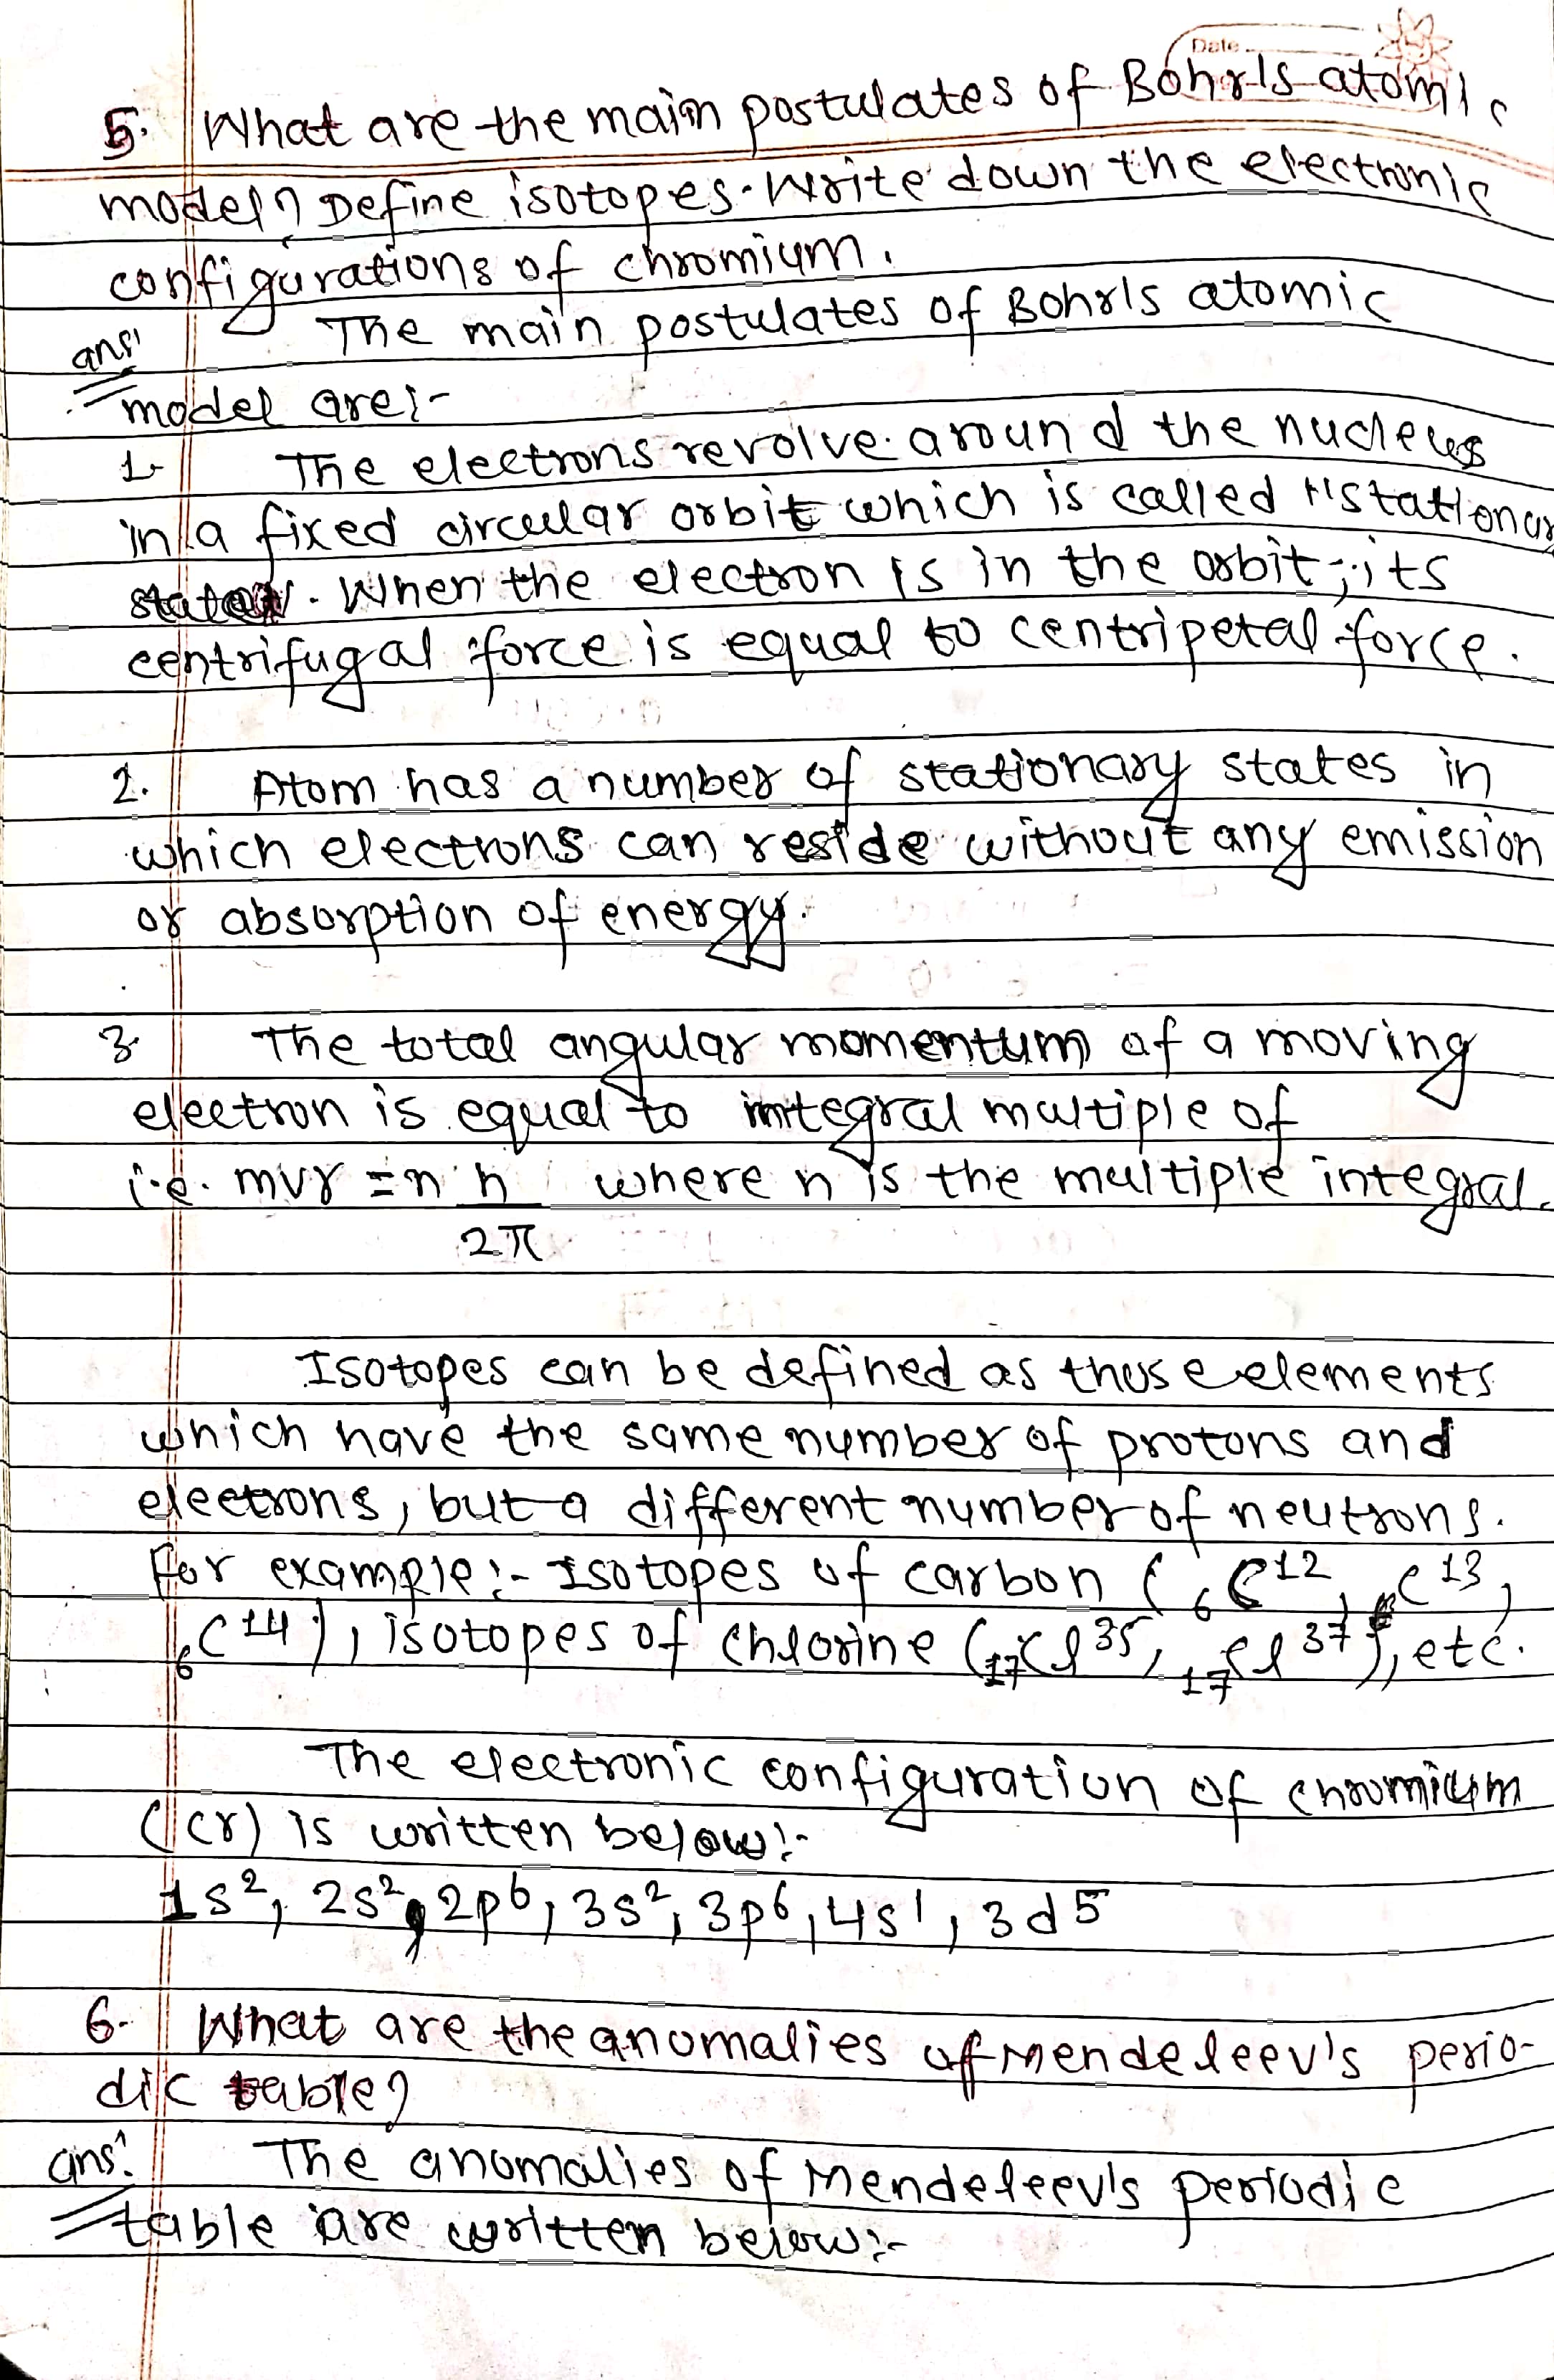 Date
5. What are the main postulates of Bohr's atomic
model? Define isotopes. Write down the electronic
configurations of chromium.
ans: The main postulates of Bohr's atomic
model are:-
1. The electrons revolve around the nucleus
in a fixed circular orbit which is called "stationary
state". When the electron is in the orbit, its
centrifugal force is equal to centripetal force.
2. Atom has a number of stationary states in
which electrons can reside without any emission
or absorption of energy.
3. The total angular momentum of a moving
electron is equal to integral multiple of
i.e. mvr = n h where n is the multiple integral.
2π
Isotopes can be defined as those elements
which have the same number of protons and
electrons, but a different number of neutrons.
For example:- Isotopes of carbon (₆C¹², ₆C¹³,
₆C¹⁴), isotopes of chlorine (₁₇Cl³⁵, ₁₇Cl³⁷), etc.
The electronic configuration of chromium
(cr) is written below:-
1s², 2s², 2p⁶, 3s², 3p⁶, 4s¹, 3d⁵
6. What are the anomalies of Mendeleev's perio-
dic table?
ans: The anomalies of Mendeleev's periodic
table are written below:-